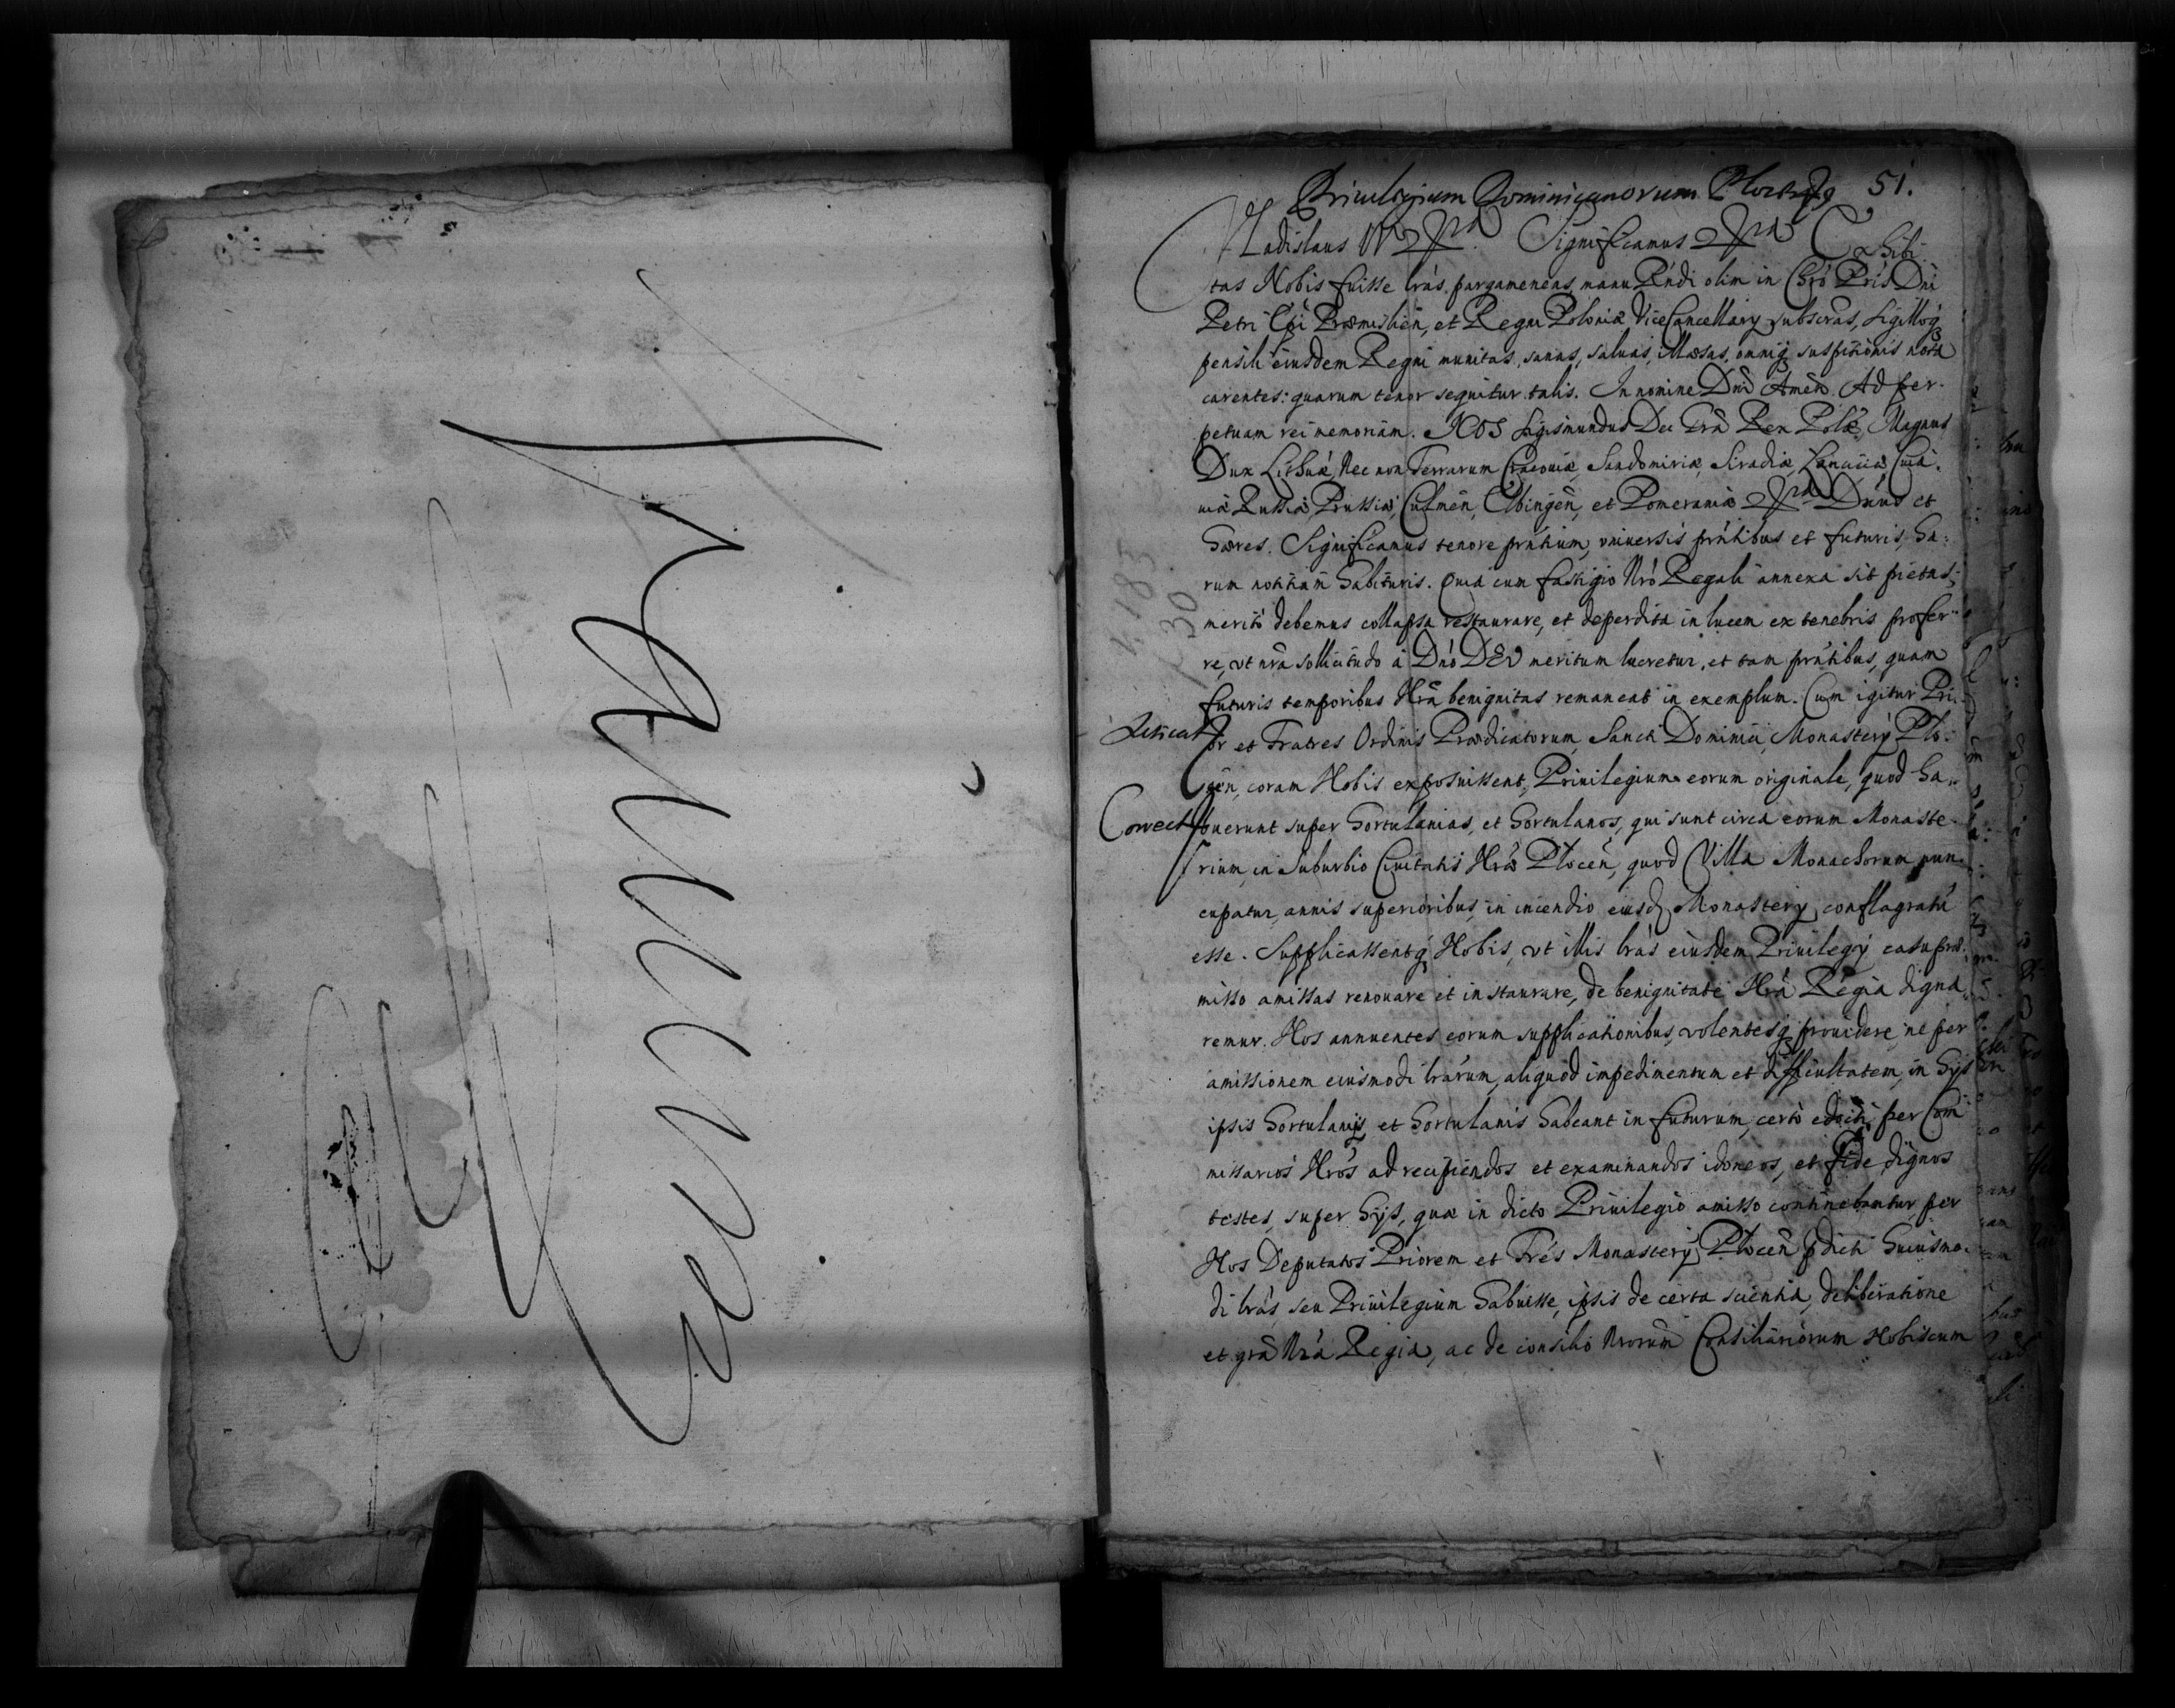 Vacuae
Priuilegium Dominicanorum 51.
Vladislaus IV Significamus Exhibi
tas Nobis fuisse lrás pargameneas manu Rńdi olim in Chrō Pris Dni
Petri Ep̄i Præmislien̄, et Regni Poloniæ ViceCancellarij subscrās, sigilloq̃
pensili eiusdem Regni munitas, sanas, saluas, illæsas, omniq̃ suspitionis nota
carentes: quarum tenor sequitur talis. In nomine Dn̄i Amen. Ad per-
petuam rei memoriam. NOS Sigismundus Dei Grā Rex Polæ, Magnus
Dux Lithuæ, Nec non Terrarum Cracouiæ, Sandomiriæ, Siradiæ, Lanciciæ, Cuia-
uiæ Russiæ, Prussiæ, Culmen̄, Elbingen̄, et Pomeraniæ Dn̄us et
Hæres. Significamus tenore prñtium, vniuersis prñtibus et futuris, ha-
rum notitiam habituris. Quia cum fastigio Nrō Regali annexa sit pietas,
meritò debemus collapsa restaurare, et deperdita in lucem ex tenebris profer-
re, vt nrā sollicitudo á Dnō DEO meritum lucretur, et tam prñtibus, quam
futuris temporibus Nrā benignitas remaneat in exemplum. Cum igitur Pri-
or et Fratres Ordinis Prædicatorum, Sancti Dominici, Monasterij Plo-
cen̄, coram Nobis exposuissent, Priuilegium eorum originale, quod ha-
Correct buerunt super hortulanias, et hortulanos, qui sunt circa eorum Monaste-
rium, in Suburbio Ciuitatis Nræ Plocen̄, quod Villa Monachorum nun-
cupatur, annis superioribus, in incendio eiusd Monasterij conflagratū
esse. Supplicassentq̃ Nobis, vt illis lrás eiusdem Priuilegij casu præ-
misso amissas renouare et instaurare, de benignitate Nrā Regia digna-
remur. Nos annuentes eorum supplicationibus, volentesq̃ prouidere, ne per
amissionem eiusmodi lrárum, aliquod impedimentum et difficultatem, in hijs
ipsis hortulanijs et hortulanis habeant in futurum, certò edocti, per Com̄
missarios Nrōs ad recipiendos et examinandos idoneos, et fide dignos
testes, super hijs, quæ in dicto Priuilegio amisso continebantur, per
Nos Deputatos Priorem et Frēs Monasterij Plocen̄ p̄dicti huiusmo-
di lrás, seu Priuilegium habuisse, ipsis de certa scientia, deliberatione
et grā Nrā Regia, ac de consilio Nrorūm Consiliariorum Nobiscum